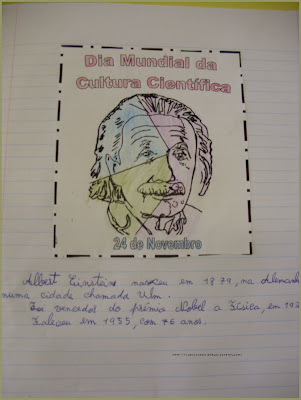 Dia Mundial da
Cultura Científica
24 de Novembro
Albert Einstein nasceu em 1879, na Alemanh
numa cidade chamada Ulm.
Foi vencedor do prémio Nobel a Física, em 192
Faleceu em 1955, com 76 anos.